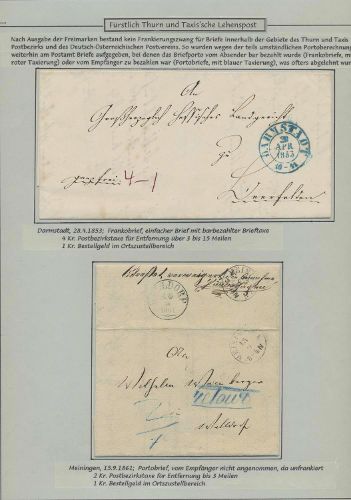 Fürstlich Thurn und Taxis'sche Lehenspost
Nach Ausgabe der Freimarken bestand kein Frankierungszwang für Briefe innerhalb der Gebiete des Thurn und Taxis
Postbezirks und des Deutsch-Österreichischen Postvereins. So wurden wegen der teils umständlichen Portoberechnung
weiterhin am Postamt Briefe aufgegeben, bei denen das Briefporto vom Absender bar bezahlt wurde (Frankobriefe, mit
roter Taxierung) oder vom Empfänger zu bezahlen war (Portobriefe, mit blauer Taxierung), was ofters abgelehnt wurde
An
Großherzoglich Hessisches Landgericht
zu
DARMSTADT
28
APR
1853
4-1
Darmstadt, 28.4.1853; Frankobrief, einfacher Brief mit barbezahlter Brieftaxe
4 Kr. Postbezirkstaxe für Entfernung über 3 bis 15 Meilen
1 Kr. Bestellgeld im Ortszustellbereich
1861
Wilhelm
retour
Walldorf
Meiningen, 15.9.1861; Portobrief, vom Empfänger nicht angenommen, da unfrankiert
2 Kr. Postbezirkstaxe für Entfernung bis 3 Meilen
1 Kr. Bestellgeld im Ortszustellbereich